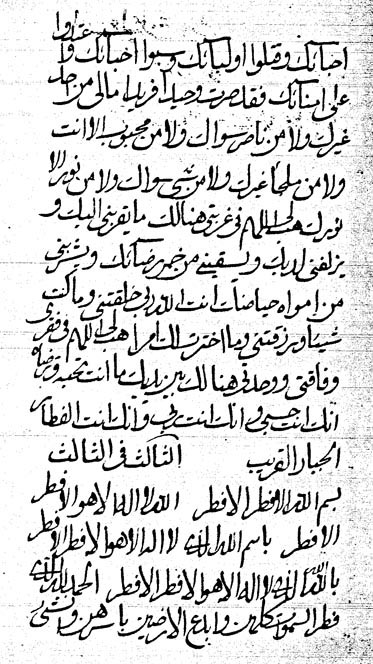 احبائك وقتلوا اوليائك وسبوا احبائك و
على امنائك فقد صرت وحيدا فريدا مالى من احد
غيرك ولا من ناصر سواك ولا من محبوب الا انت
ولا من ملجأ غيرك ولا من شيء سواك ولا من نور الا
نورك هب لى اللهم فى غربتى هنالك ما يقربنى اليك و
يزلفنى لديك ويسقينى من خمر رضائك ويشربنى
من امواه حياضك انت الذى خلقتنى وما كنت
شيئا ورزقتنى وما اخترت لك امرا هب لى اللهم فى فقرى
وفاقتى ووحدتى هنالك بين يديك ما انت تحبه وترضاه
انك انت حسبى وانك انت ربى وانك انت الفطار
الجبار القريب الثالث فى الثالث
بسم الله الافطر الافطر الله لا اله الا هو الافطر
الافطر باسم الله الذى لا اله الا هو الافطر الافطر
بالله الذى لا اله الا هو الافطر الافطر الحمد لله الذى
فطر السموات وابدع الارضين بامره